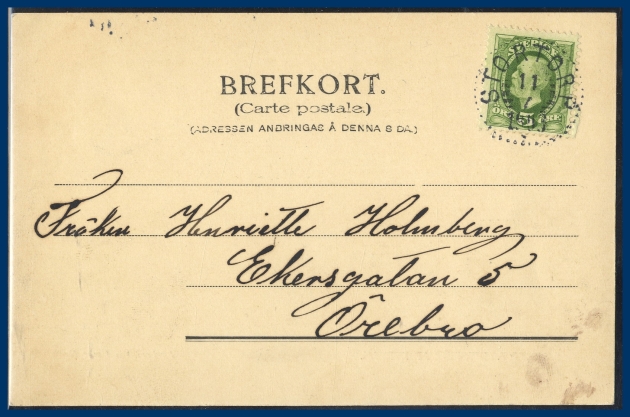 BREFKORT.
(Carte postale.)
(ADRESSEN ANBRINGAS Å DENNA SIDA.)
STORTORP
11
7
Fröken Henriette Holmberg
Ekersgatan 5
Örebro